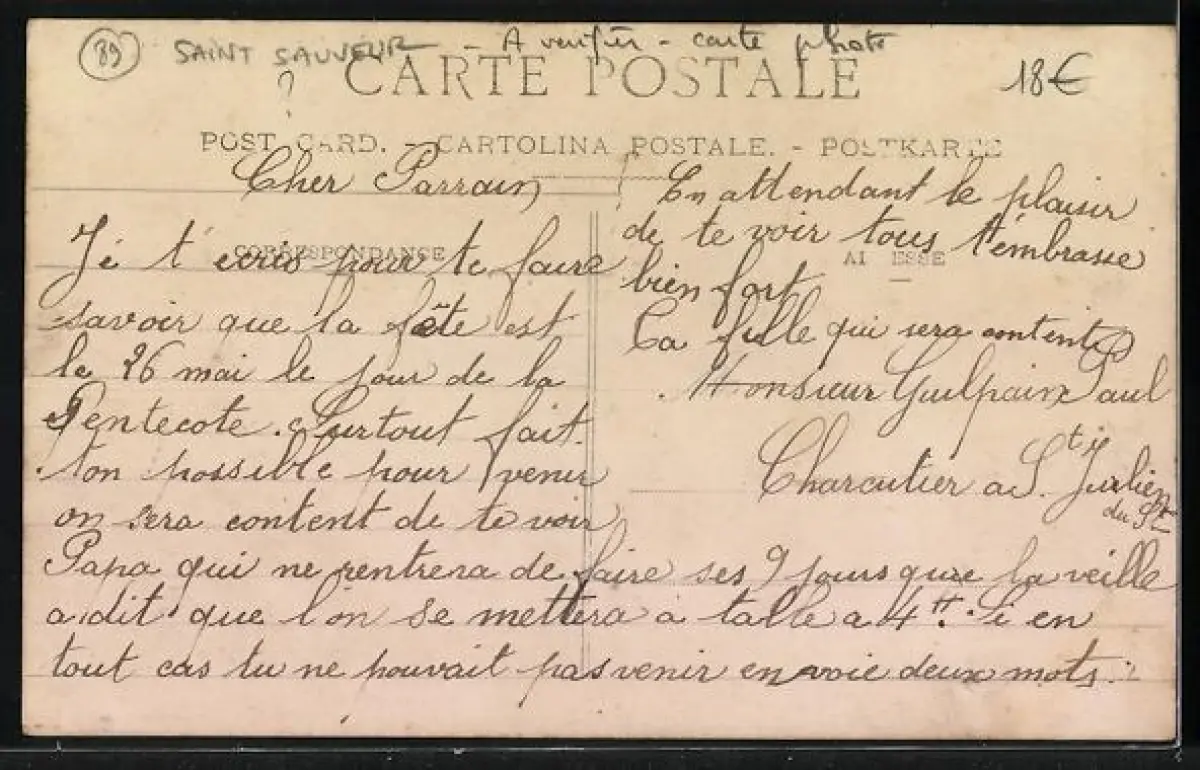 89 SAINT SAUVEUR - A verifier - carte photo
?
18€
CARTE POSTALE
POST CARD. - CARTOLINA POSTALE. - POSTKARTE
CORRESPONDANCE
Cher Parrain
Je t'écris pour te faire
savoir que la fête est
le 26 mai le jour de la
Pentecote. Surtout fait
ton possible pour venir
on sera content de te voir
Papa qui ne rentrera de faire ses 9 jours que la veille
a dit que l'on se mettera à table a 4H. Si en
tout cas tu ne pouvait pas venir envoie deux mots.
En attendant le plaisir
de te voir tous t'embrasse
bien fort
Ta fille qui sera contente
Monsieur Guilpain Paul
Charcutier a St Julien
du St